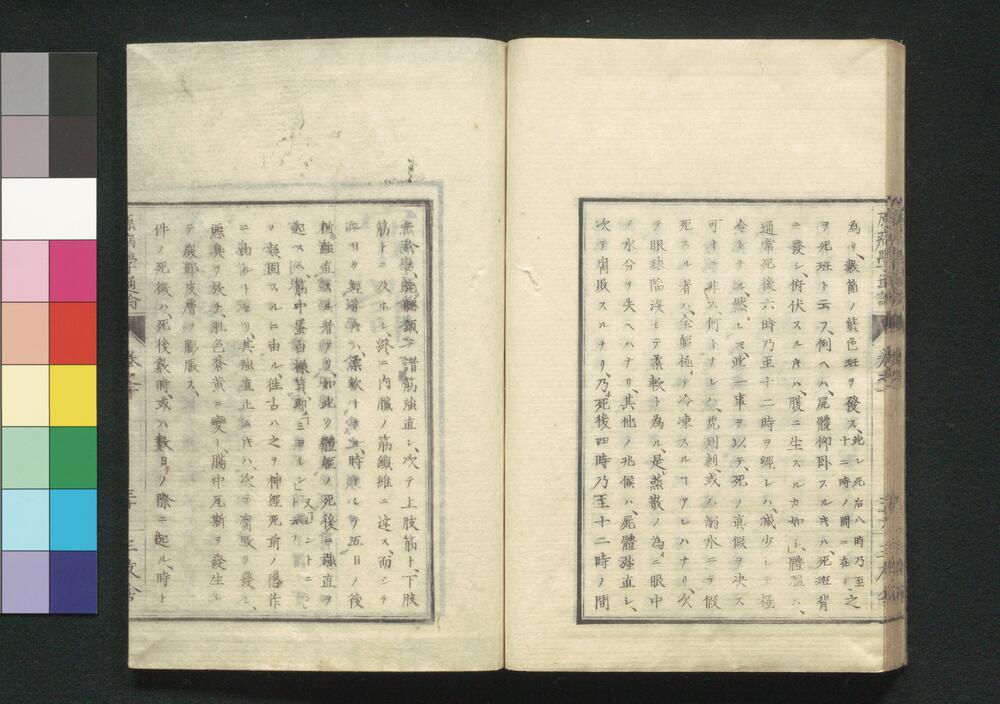 為リ、數箇ノ藍色斑ヲ發ス、此レ死后八時乃至十二時ノ間ニ在リ、之
ヲ死斑ト云フ、例ヘハ、屍體仰臥スルキハ、死斑背
ニ發シ、俯伏スルキハ、腹ニ生スルカ如シ、體溫ハ、
通常死後六時乃至十二時ヲ經レハ、減少シテ極
令トナル、然レモ、此一事ヲ以テ、死ノ眞假ヲ決ス
可キニ非ス、何トナレハ、虎列刺、或ハ溺水ニテ假
死スル者ハ、全軀極テ冷凍スルヿアレハナリ、次
テ眼球陷沒シテ柔軟ト為ル、是蒸散ノ為ニ眼中
ノ水分ヲ失ヘハナリ、其他ノ兆候ハ、屍體強直シ、
次テ腐敗スルナリ、乃死後四時乃至十二時ノ間
諸筋強直シ、次テ上肢筋ト、下肢
筋トニ及ホシ、終ニ內臟ノ筋纖維ニ達ス、而シテ
柔軟トナリ、時トシテ五日ノ後
強直スル者アリ、如此ク體軀ノ死後ニ強直ヲ
起スハ、筋中蛋白樣質
ノ凝固スルニ由ル、往古ハ之ヲ神經死前ノ隱作
ニ由ルトセリ、其強直止ムキハ、次テ腐敗ヲ發シ、
惡臭ヲ放チ、肌色蒼黃ニ變シ、腸中瓦斯ヲ發生シ
テ腹部皮膚ヲ膨脹ス、
件ノ死徵ハ、死後數時、或ハ數日ノ際ニ起ル、時ト